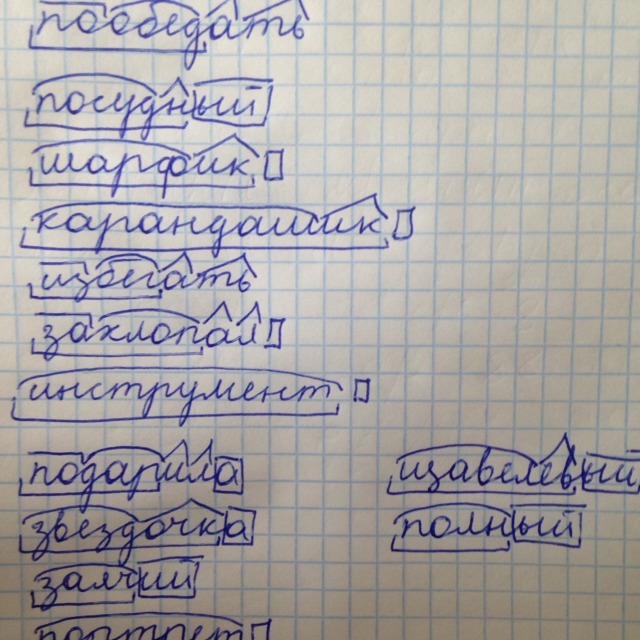 пообедать
посудный
шарфик
карандашик
избегать
захлопал
инструмент
подарила
щавелевый
звездочка
полный
заячий
портрет